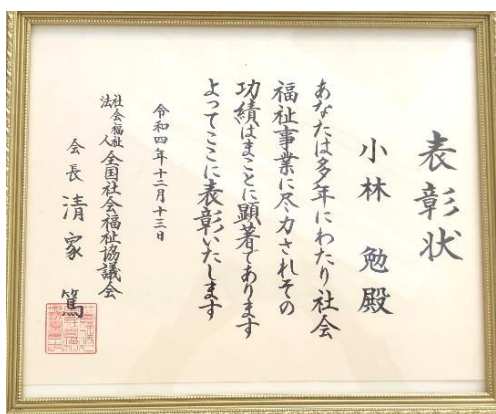 表彰状
小林 勉殿
あなたは多年にわたり社会
福祉事業に尽力されその
功績はまことに顕著であります
よってここに表彰いたします
令和四年十二月十三日
社会福祉法人 全国社会福祉協議会
会長 清家 篤